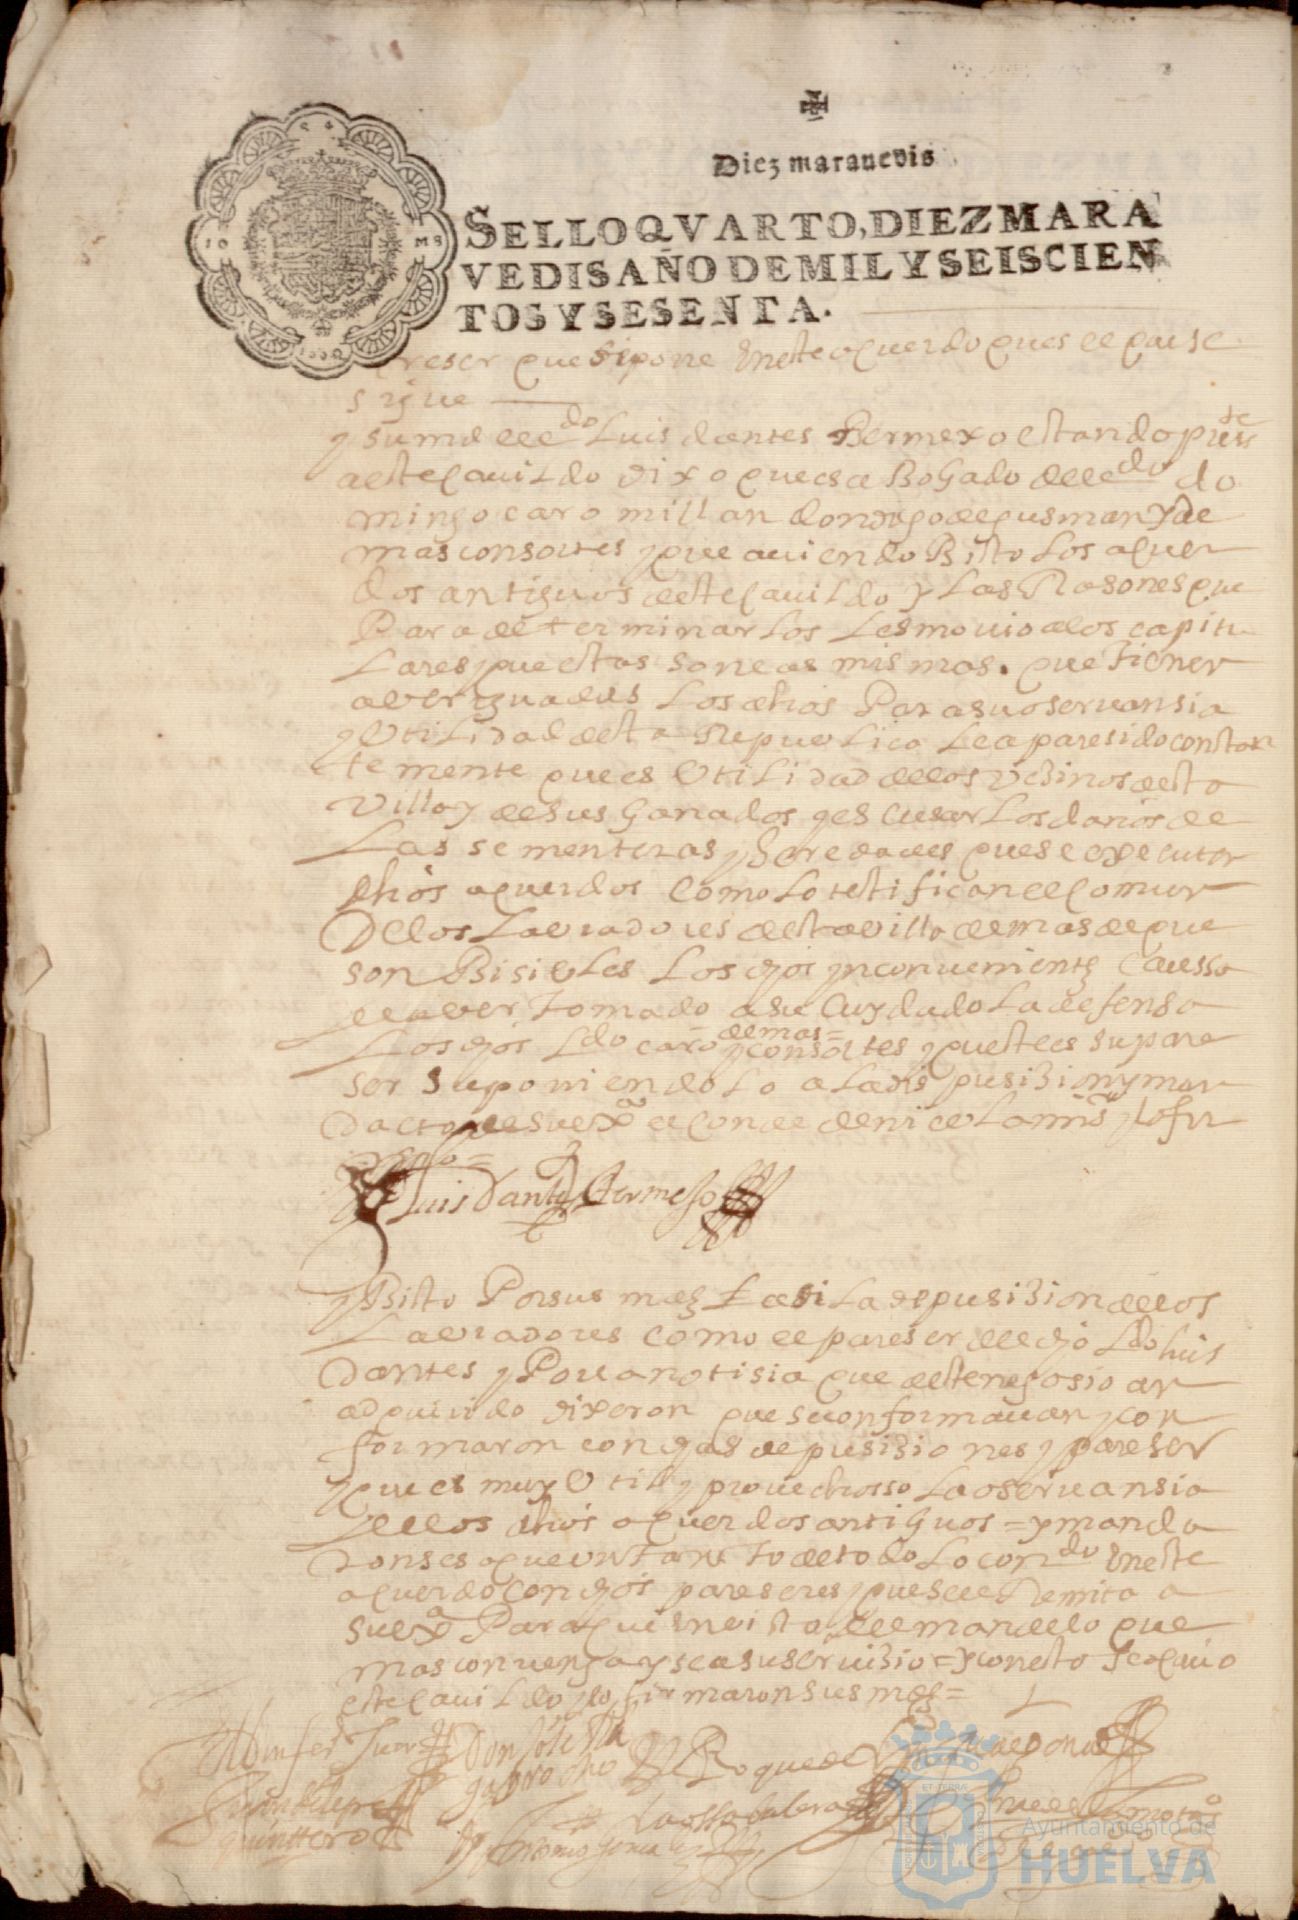 Diez maravedis
SELLO QVARTO, DIEZ MARA
VEDIS AÑO DE MIL Y SEISCIEN
TOS Y SESENTA.
preser que se pone en este aquerdo ques el que se
sigue
y su md el ldo Luis dantes Bermexo estando press te
a este cauildo dixo que es aBogado del ldo do
mingo caro millan don diego de gusman y de
mas consortes y que auiendo Bisto los aquer
dos antiguos deste cauildo y las Rasones que
Para determinarlos les mouio a los capitu
lares que estas son las mismas que tienen
aberiguadas los dhos Para su oseruansia
y Utilidad desta Republica le a paresido constan
temente que es Utilidad de los Vesinos desta
Villa y de sus ganados y escusar los daños de
las sementeras y Heredades que se executen
dhos aquerdos como lo testifican el comun
De los Labradores desta villa demas de que
son Bisibles los dhos ynconuenientes caussa
de aber tomado a su cuydado la defensa
Los dhos Ldo caro y demas consortes y que este es su pare
ser suponiendolo a la disposision y man
dacto de su exa el conde de niebla mi sr y lo fir
mo =
Luis Dantes Bermejo
y Bisto Por sus mds asi la depusision de los
Labradores como el pareser del dho Ldo luis
Dantes y Por la notisia que deste negosio an
adquirido dixeron que se conformauan y con
formaron con dhas depusisiones y pareser
y que es muy Util y prouechosso la oseruansia
de los dhos aquerdos antiguos = y manda
ron se saque un tanto de todo lo condo en este
aquerdo con dhos pareseres y que se le Remita a
su exa Para que en vista del mande lo que
mas conuenga y sea su seruisio = y con esto se acauo
este cauildo y lo firmaron sus mds =
Don
Roque de
quinttero
Antonio
Ayuntamiento de
HUELVA